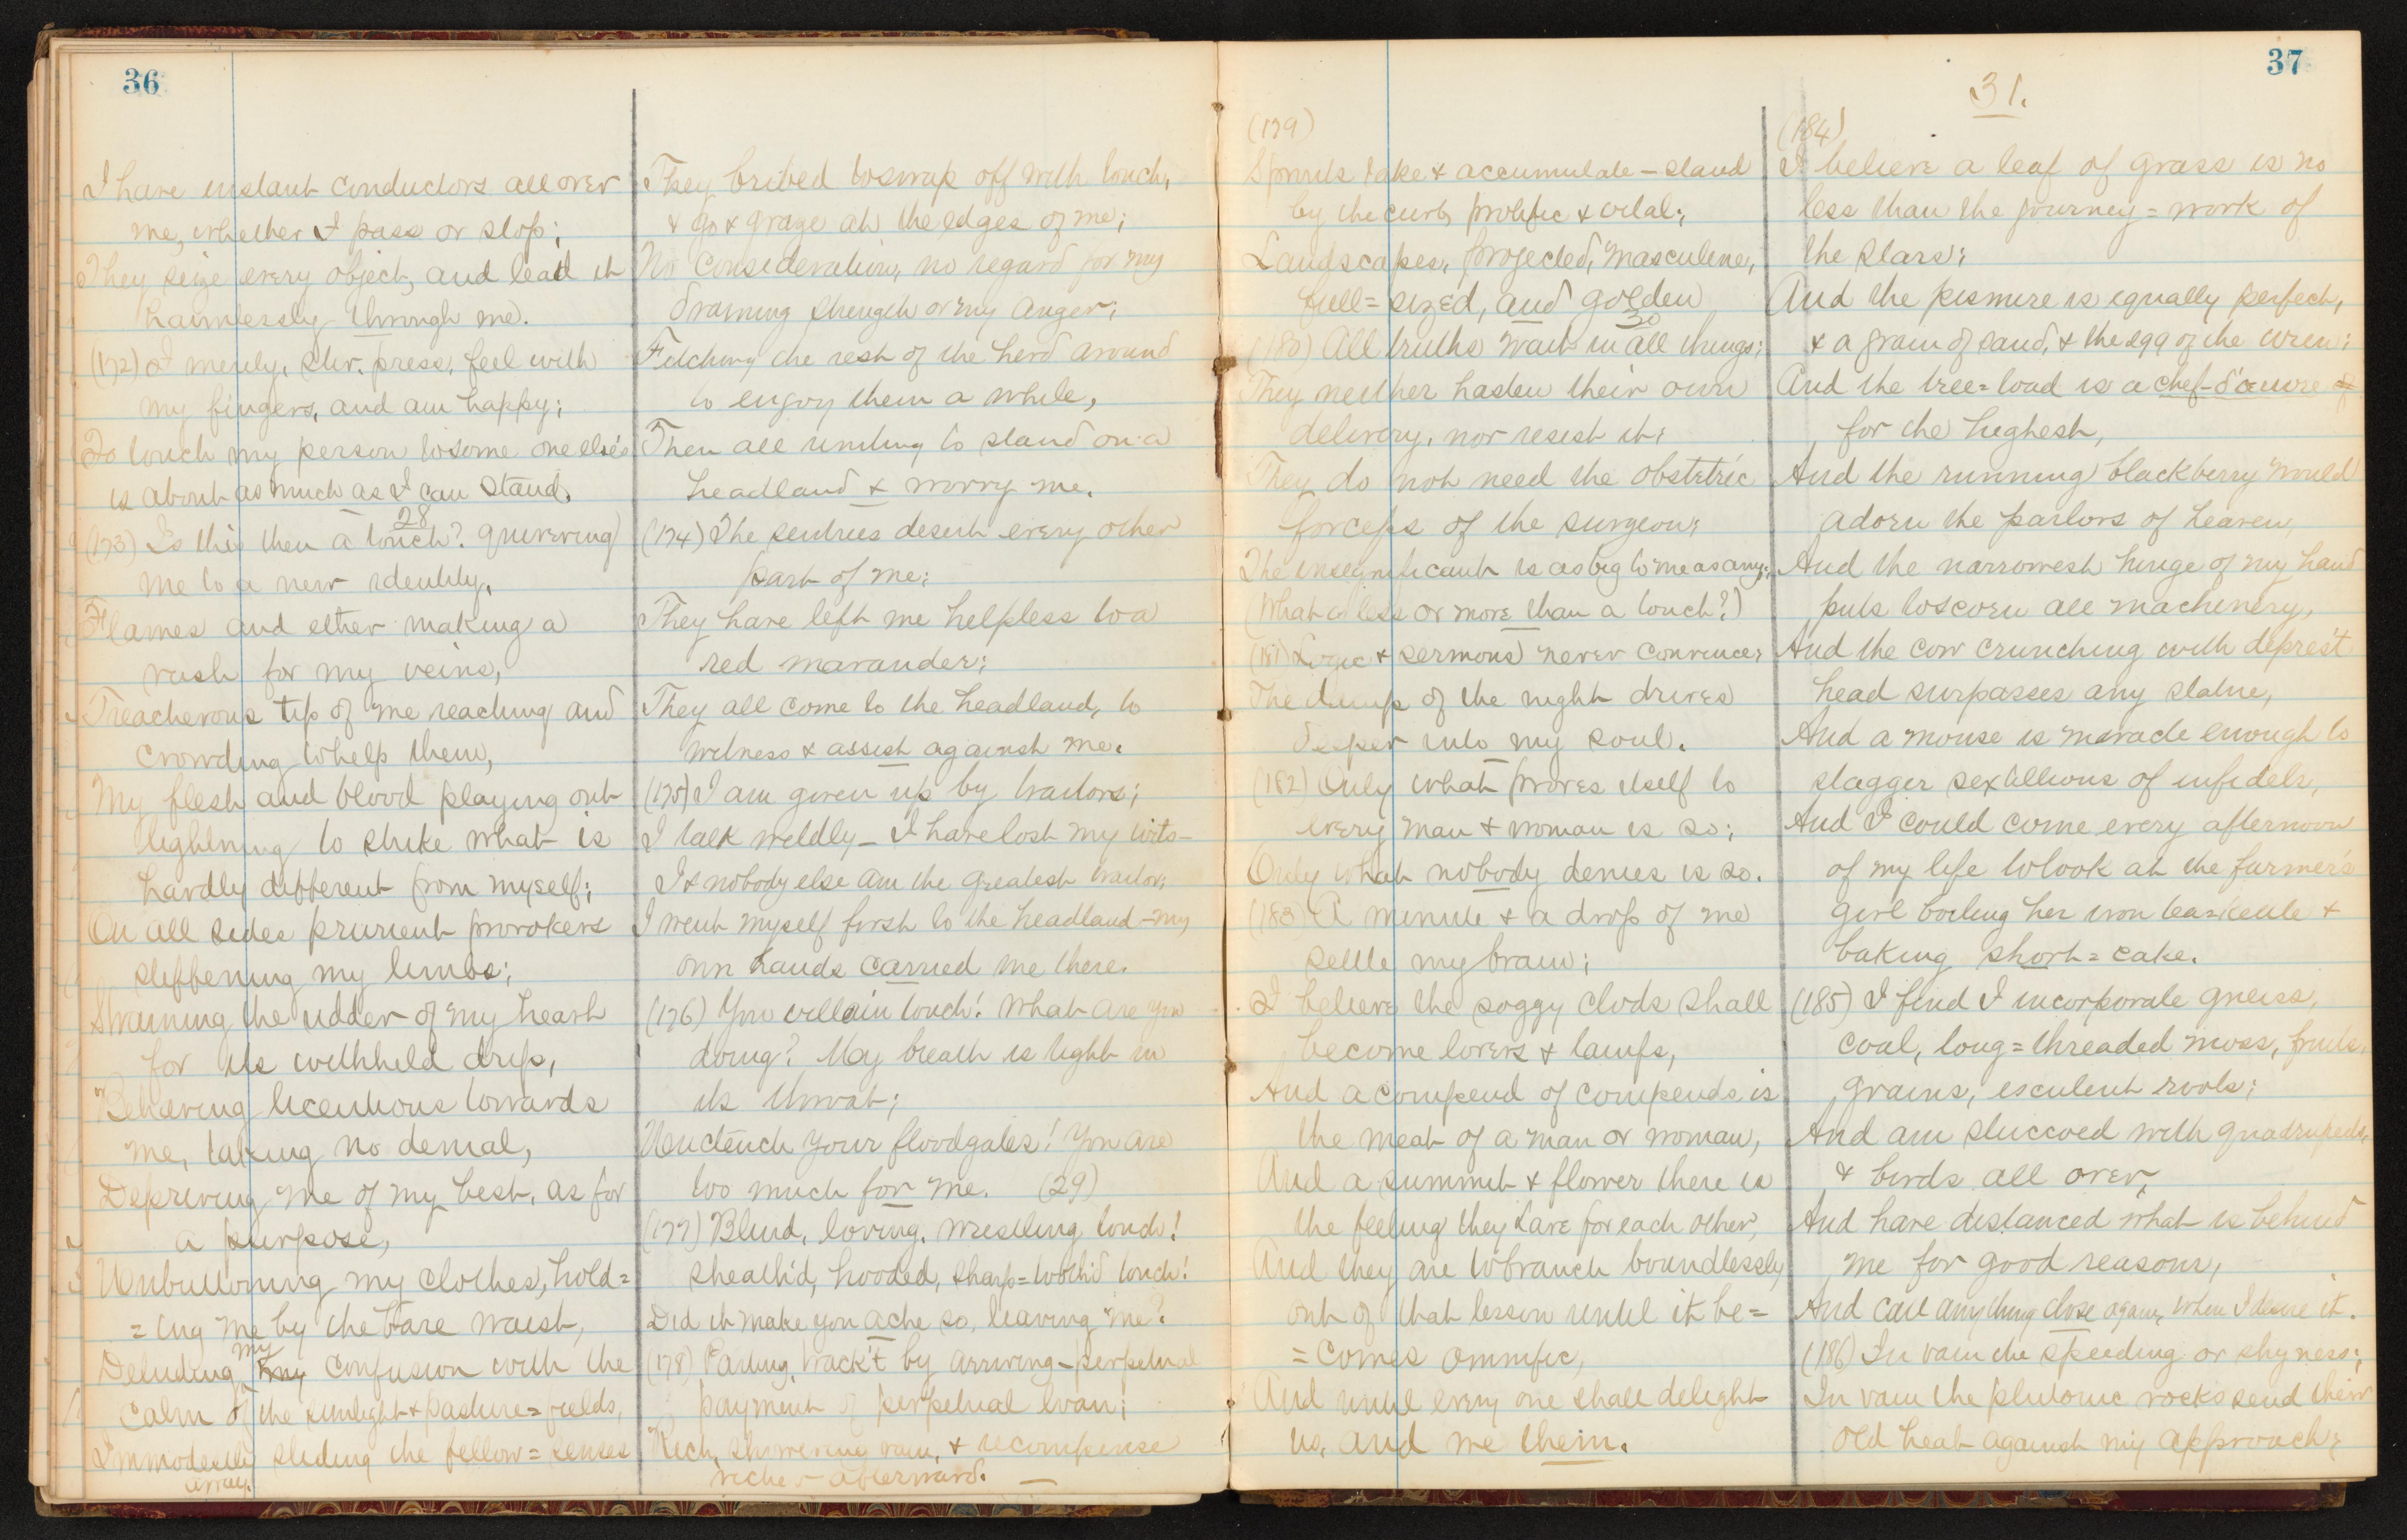 36
I have instant conductors all over
me, whether I pass or stop;
They seize every object, and lead it
harmlessly through me.
(172) I merely, stir, press, feel with
my fingers, and am happy;
To touch my person to some one else's
is about as much as I can stand.
28
(173) Is this then a touch? quivering
me to a new identity,
Flames and ether making a
rush for my veins,
Treacherous tip of me reaching and
crowding to help them,
My flesh and blood playing out
lightning to strike what is
hardly different from myself;
On all sides prurient provokers
stiffening my limbs;
Straining the udder of my heart
for its withheld drip,
Behaving licentious towards
me, taking no denial,
Depriving me of my best, as for
a purpose,
Unbuttoning my clothes, hold=
=ing me by the bare waist,
my
Deluding my confusion with the
calm of the sunlight & pasture=fields,
Immodestly sliding the fellow=senses
away.
They bribed to swap off with touch,
& go & graze at the edges of me;
No consideration, no regard for my
draining strength or my anger;
Fetching the rest of the herd around
to enjoy them a while,
Then all uniting to stand on a
headland & worry me.
(174) The sentries desert every other
part of me;
They have left me helpless to a
red marauder;
They all come to the headland, to
witness & assist against me.
(175) I am given up by traitors;
I talk wildly – I have lost my wits –
I & nobody else am the greatest traitor;
I went myself first to the headland – my
own hands carried me there.
(176) You villain touch! What are you
doing? My breath is tight in
its throat;
Unclench your floodgates! You are
too much for me. (29)
(177) Blind, loving, wrestling touch!
sheath'd, hooded, sharp=tooth'd touch!
Did it make you ache so, leaving me?
(178) Parting, track't by arriving – perpetual
payment of perpetual loan;
Rich, showering rain, & recompense
richer afterward. —
37
31.
(179)
Sprouts take & accumulate – stand
by the curb, prolific & vital;
Landscapes, projected, masculine,
full=sized, and golden
30
(180) All truths wait in all things;
They neither hasten their own
delivery, nor resist it;
They do not need the obstetric
forceps of the surgeon;
The insignificant is as big to me as any;
(What is less or more than a touch?)
(181) Logic & sermons never convince;
The damp of the night drives
deeper into my soul.
(182) Only what proves itself to
every man & woman is so;
Only what nobody denies is so.
(183) A minute & a drop of me
settle my brain;
I believe the soggy clods shall
become lovers & lamps,
And a compend of compends is
the meat of a man or woman,
And a summit & flower there is
the feeling they have for each other,
And they are to branch boundlessly
out of that lesson until it be=
=comes omnific,
And until every one shall delight
us, and we them.
(184)
I believe a leaf of grass is no
less than the journey=work of
the stars;
And the pismire is equally perfect,
& a grain of sand, & the egg of the wren;
And the tree=toad is a chef-d'œuvre
for the highest,
And the running blackberry would
adorn the parlors of heaven,
And the narrowest hinge of my hand
puts to scorn all machinery,
And the cow crunching with depres't
head surpasses any statue,
And a mouse is miracle enough to
stagger sextillions of infidels,
And I could come every afternoon
of my life to look at the farmer's
girl boiling her iron tea=kettle &
baking short=cake.
(185) I find I incorporate gneiss,
coal, long=threaded moss, fruits,
grains, esculent roots;
And am stuccoed with quadrupeds,
& birds all over,
And have distanced what is behind
me for good reasons,
And call anything close again, when I desire it.
(186) In vain the speeding or shyness;
In vain the plutonic rocks send their
old heat against my approach;